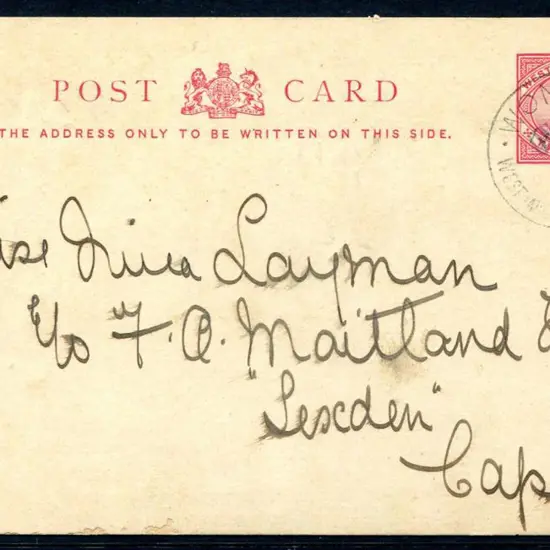 POST CARD
THE ADDRESS ONLY TO BE WRITTEN ON THIS SIDE.
WEST
WEST
Layman
C/o F. A. Maitland
"Lexden"
Cap